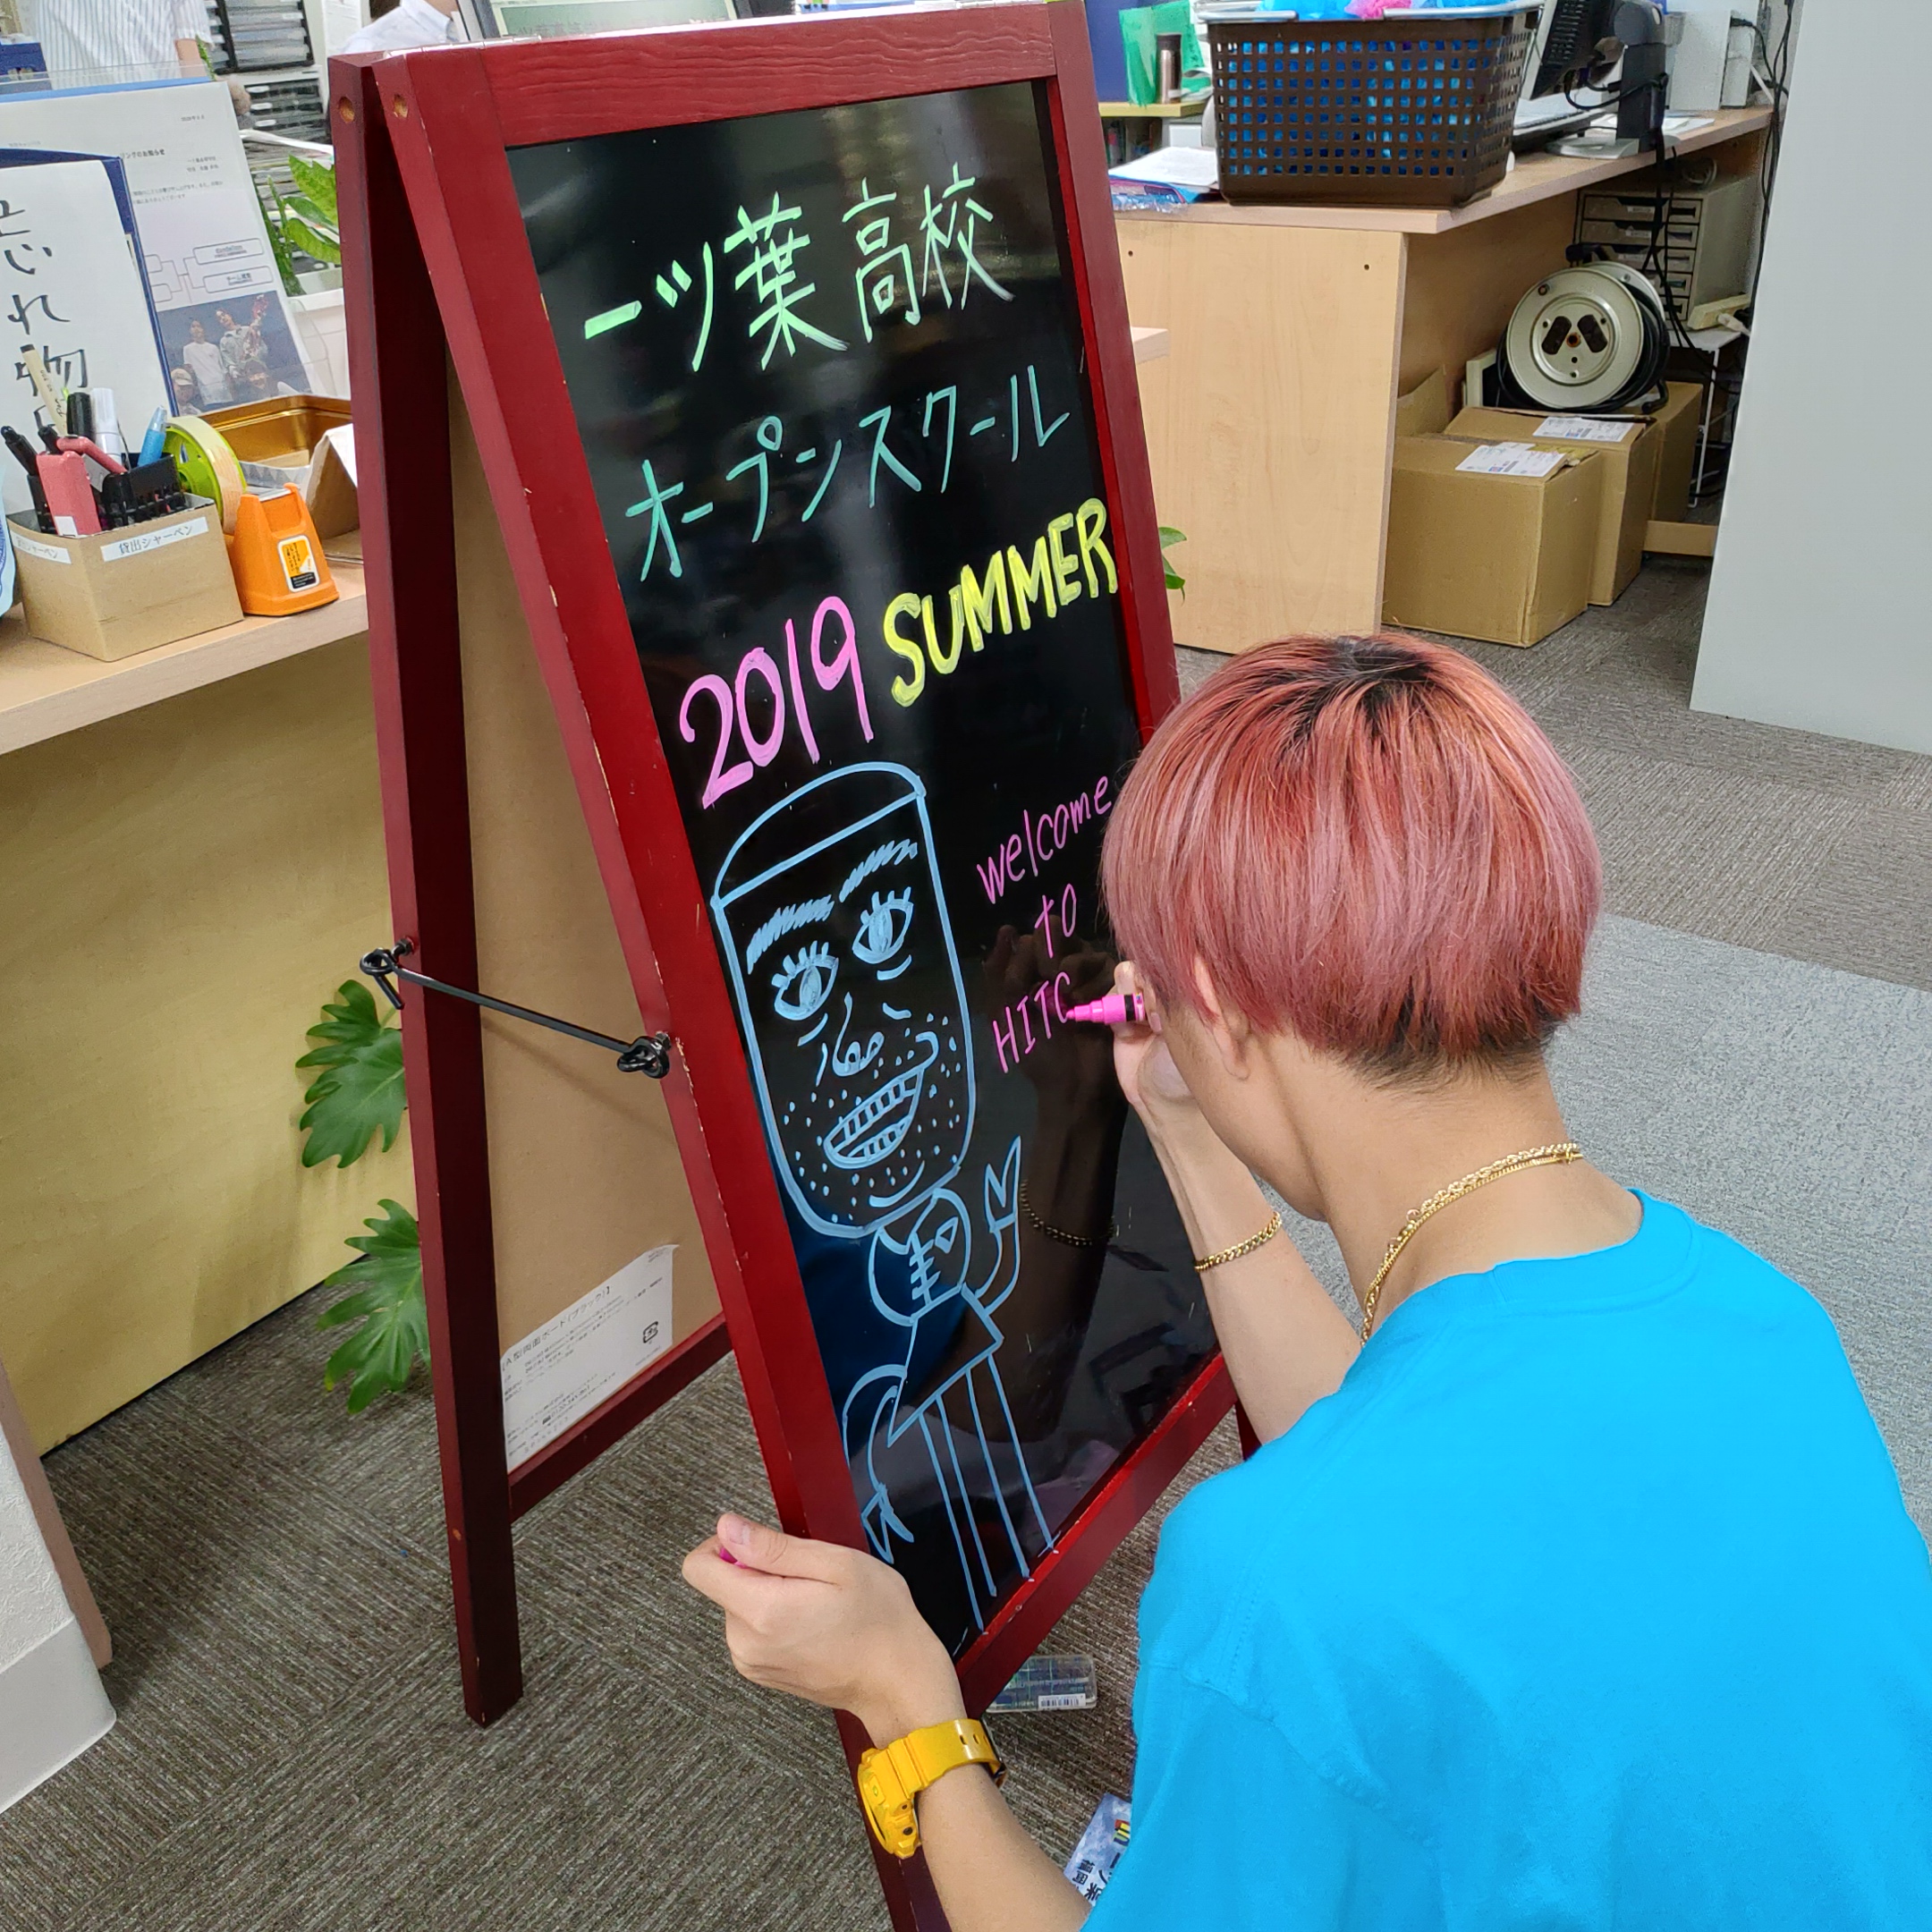 一ツ葉高校
オープンスクール
2019 SUMMER
welcome
to
HITC
忘れ物
貸出シャーペン
シャーペン